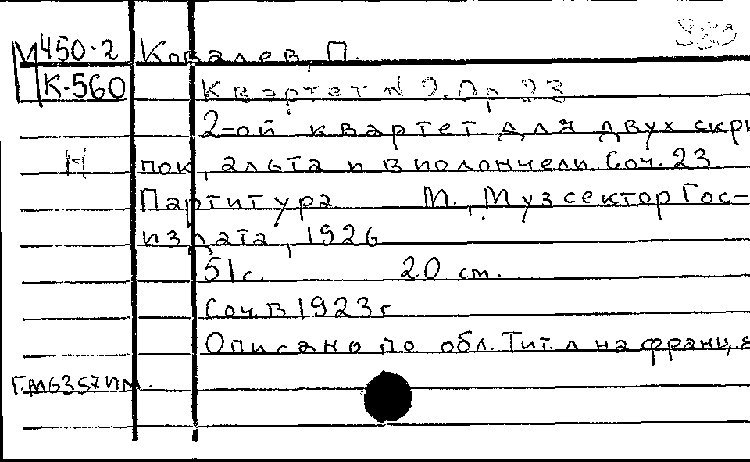 М450-2 Ковалев, П.
К-560 Квартет № 2. Ор. 23
2-ой квартет для двух скри
Н пок, альта и виолончели. Соч. 23
Партитура М., Музсектор Гос-
издата, 1926
51 с. 20 см.
Соч. в 1923 г
Описано по обл. Тит. л на франц. я